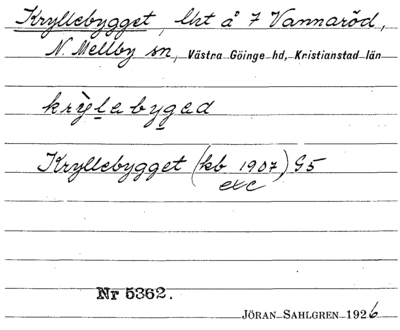 Kryllebygget, lht å 7 Vannaröd,
N. Mellby sn, Västra Göinge hd, Kristianstad län
krỳlabygad
Kryllebygget (kb 1907) G5
exc
Nr 5362.
JÖRAN SAHLGREN 1926